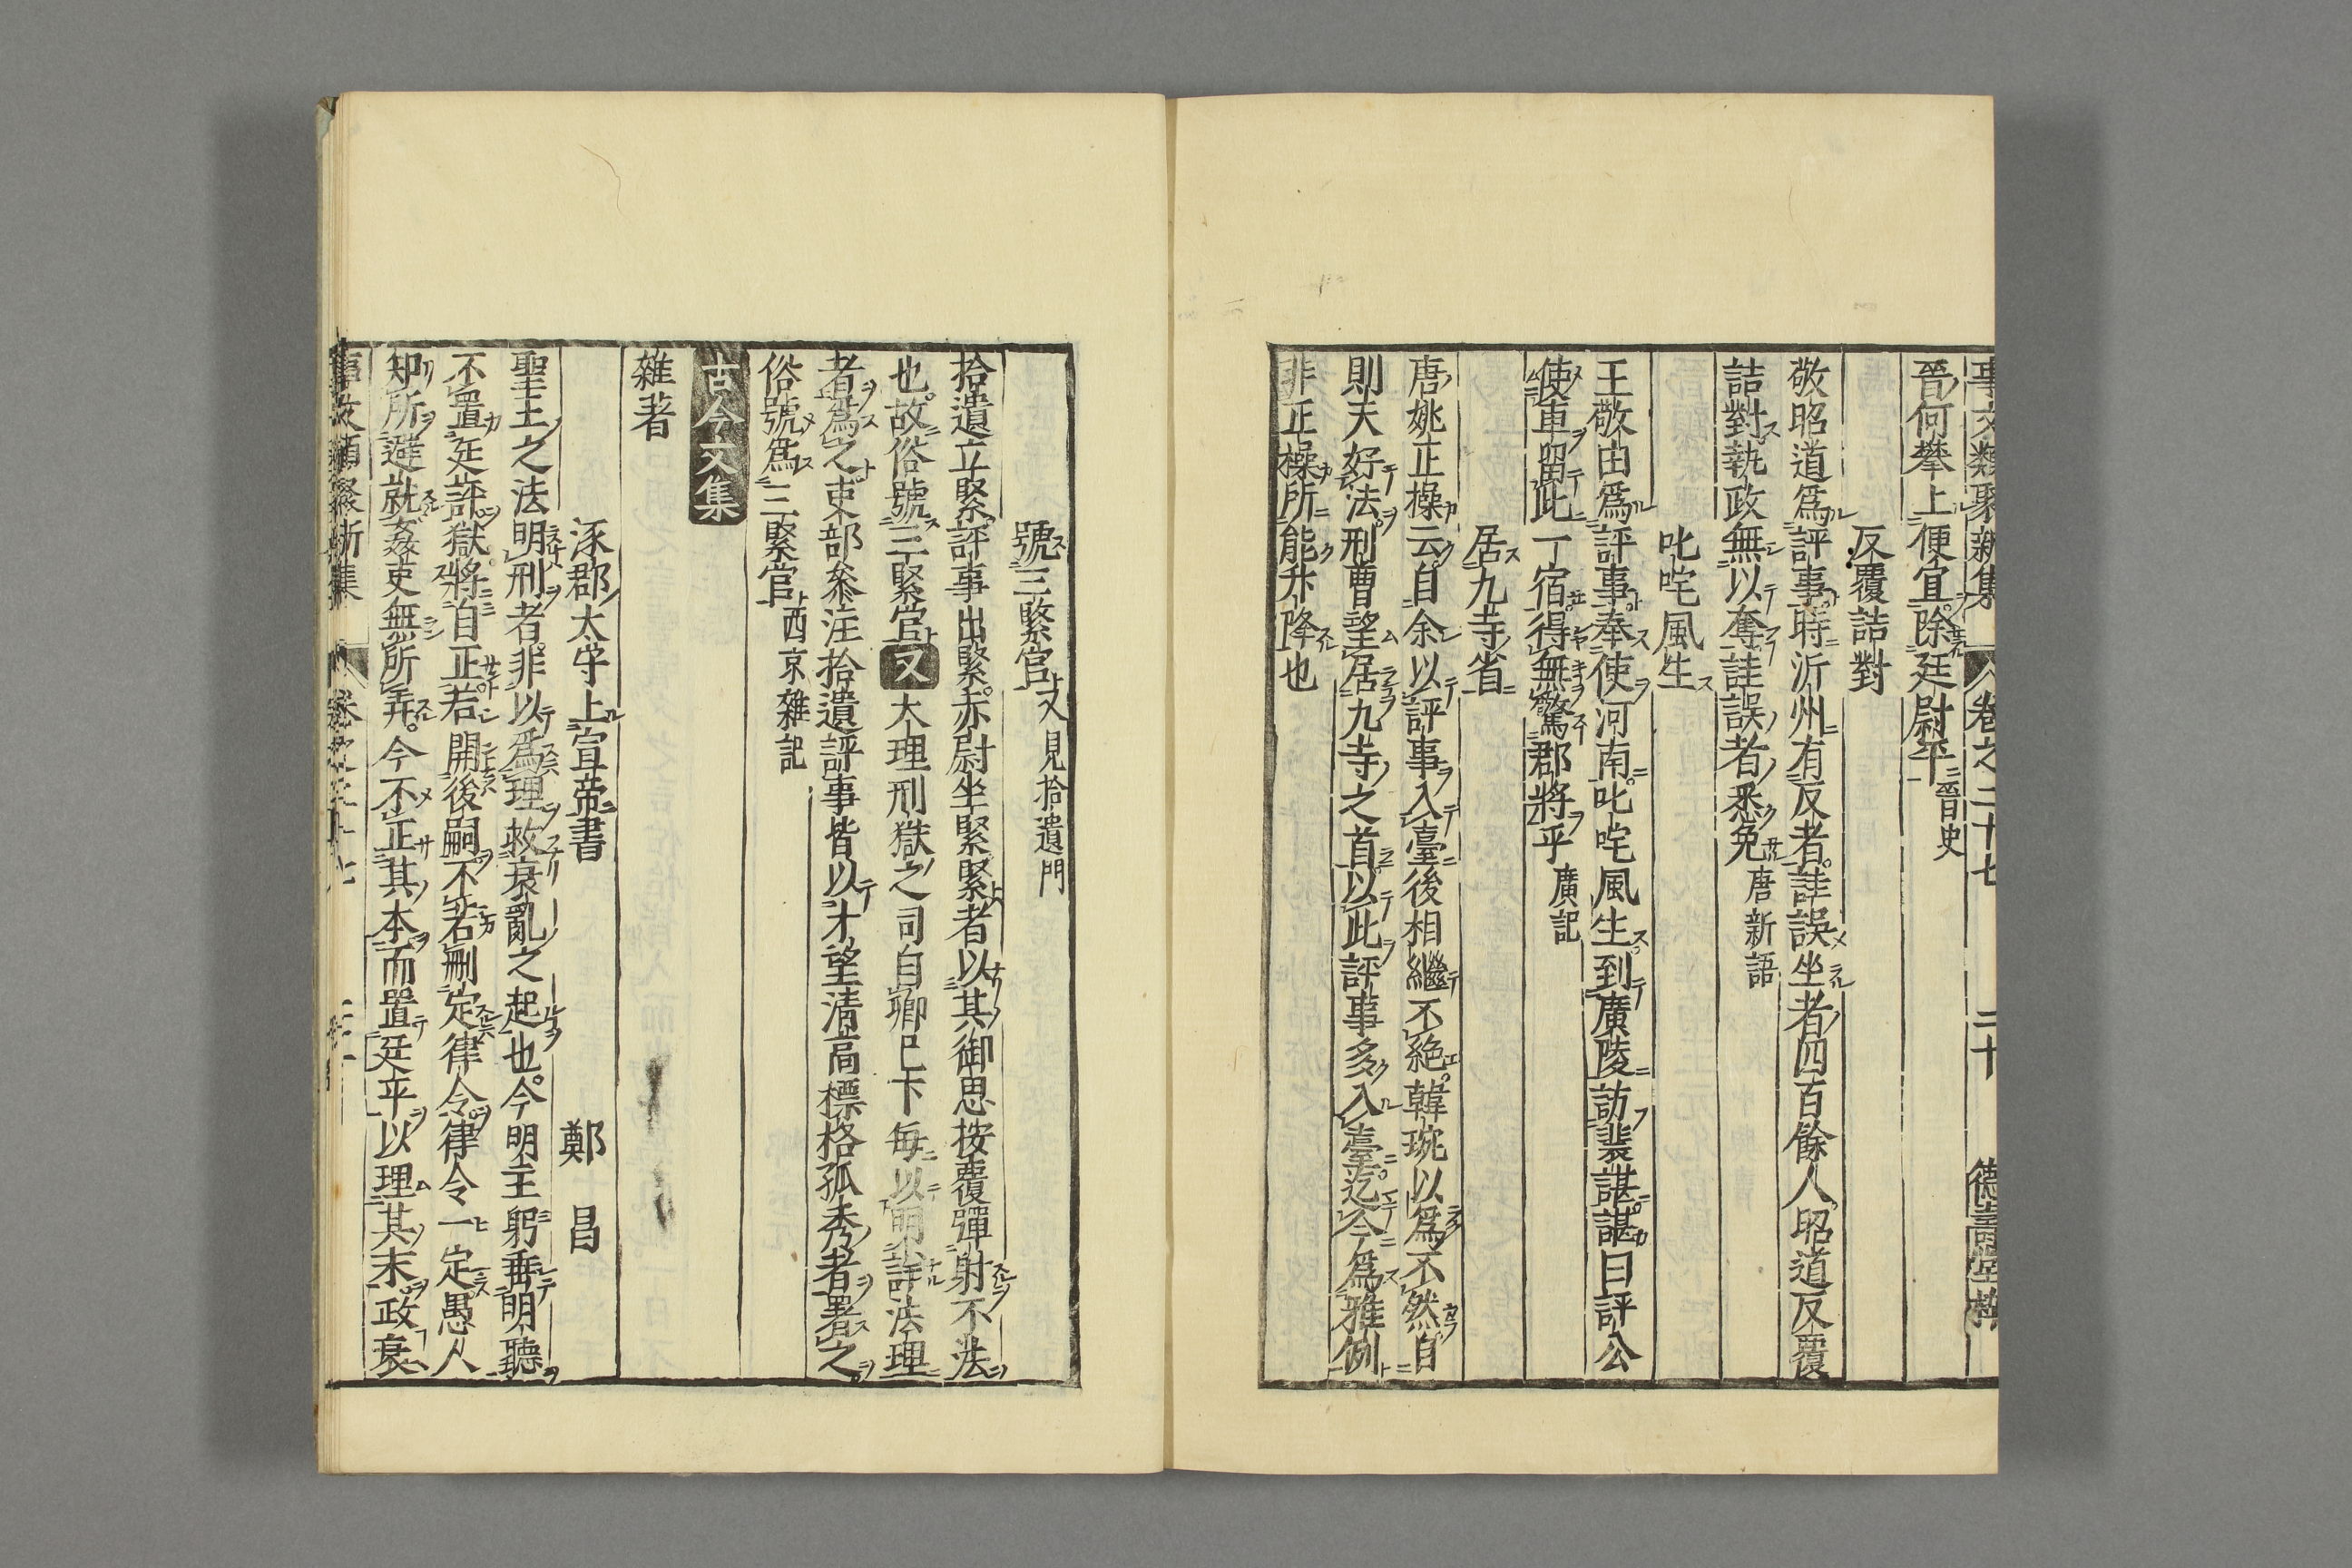 事文類聚新集 卷之二十七 二十 德壽堂梓
晉何攀上便宜除廷尉平晉史
反覆詰對
敬昭道爲評事時沂州有反者詿誤坐者四百餘人昭道反覆
詰對執政無以奪詿誤者悉免唐新語
叱咤風生
王敬由爲評事奉使河南叱咤風生到廣陵訪裴諶諶曰評公
使車畱此一宿得無驚郡將乎廣記
居九寺省
唐姚正操云自余以評事入臺後相繼不絕韓琬以爲不然自
則天好法刑曹望居九寺之首以此評事多入臺迄今爲雅例
非正操所能升降也
號三緊官又見拾遺門
拾遺立緊評事出緊赤尉坐緊緊者以其御思按覆彈射不法
也故俗號三緊官又大理刑獄之司自卿已下每以明詳法理
者爲之吏部叅注拾遺評事皆以才望清高標格孤秀者署之
俗號爲三緊官西京雜記
古今文集
雜著
涿郡太守上宣帝書 鄭昌
聖王之法明刑者非以爲理救衰亂之起也今明主躬垂明聽
不置廷評獄將自正若開後嗣不若刪定律令律令一定愚人
知所避就姦吏無所弄今不正其本而置廷平以理其末政衰
事文類聚新集 卷之二十七